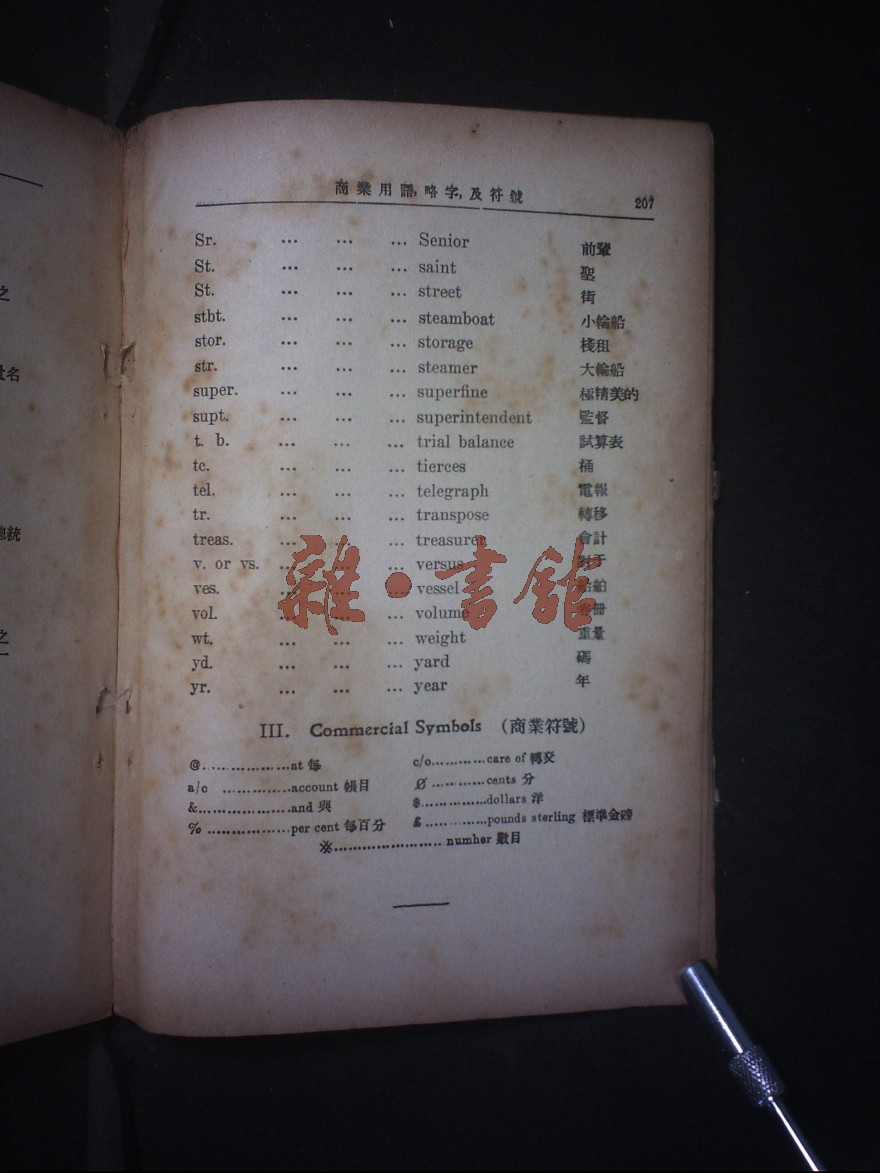 商業用語,略字,及符號 207
Sr. ... ... ... Senior 前輩
St. ... ... ... saint 聖
St. ... ... ... street 街
stbt. ... ... ... steamboat 小輪船
stor. ... ... ... storage 棧租
str. ... ... ... steamer 大輪船
super. ... ... ... superfine 極精美的
supt. ... ... ... superintendent 監督
t. b. ... ... ... trial balance 試算表
tc. ... ... ... tierces 桶
tel. ... ... ... telegraph 電報
tr. ... ... ... transpose 轉移
treas. ... ... ... treasurer 會計
v. or vs. ... ... ... versus 對于
ves. ... ... ... vessel 船舶
vol. ... ... ... volume 冊
wt. ... ... ... weight 重量
yd. ... ... ... yard 碼
yr. ... ... ... year 年
雜·書館
III. Commercial Symbols (商業符號)
@..................at 每 c/o............care of 轉交
a/c ..............account 帳目 Ø ............cents 分
&....................and 與 $...............dollars 洋
% ..................per cent 每百分 £ ..............pounds sterling 標準金磅
※........................ numher 數目
之
名
總統
之